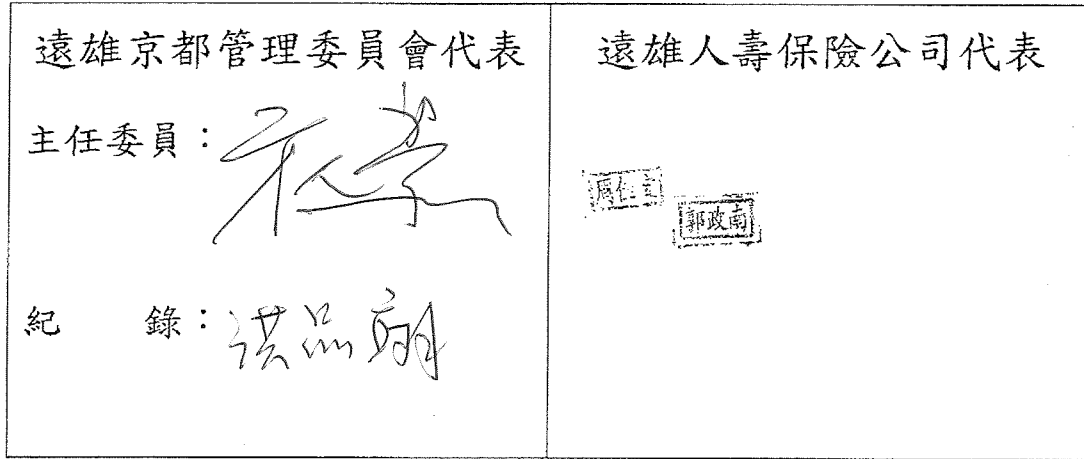 遠雄京都管理委員會代表
主任委員：
紀 錄：洪品翔
遠雄人壽保險公司代表
郭政南